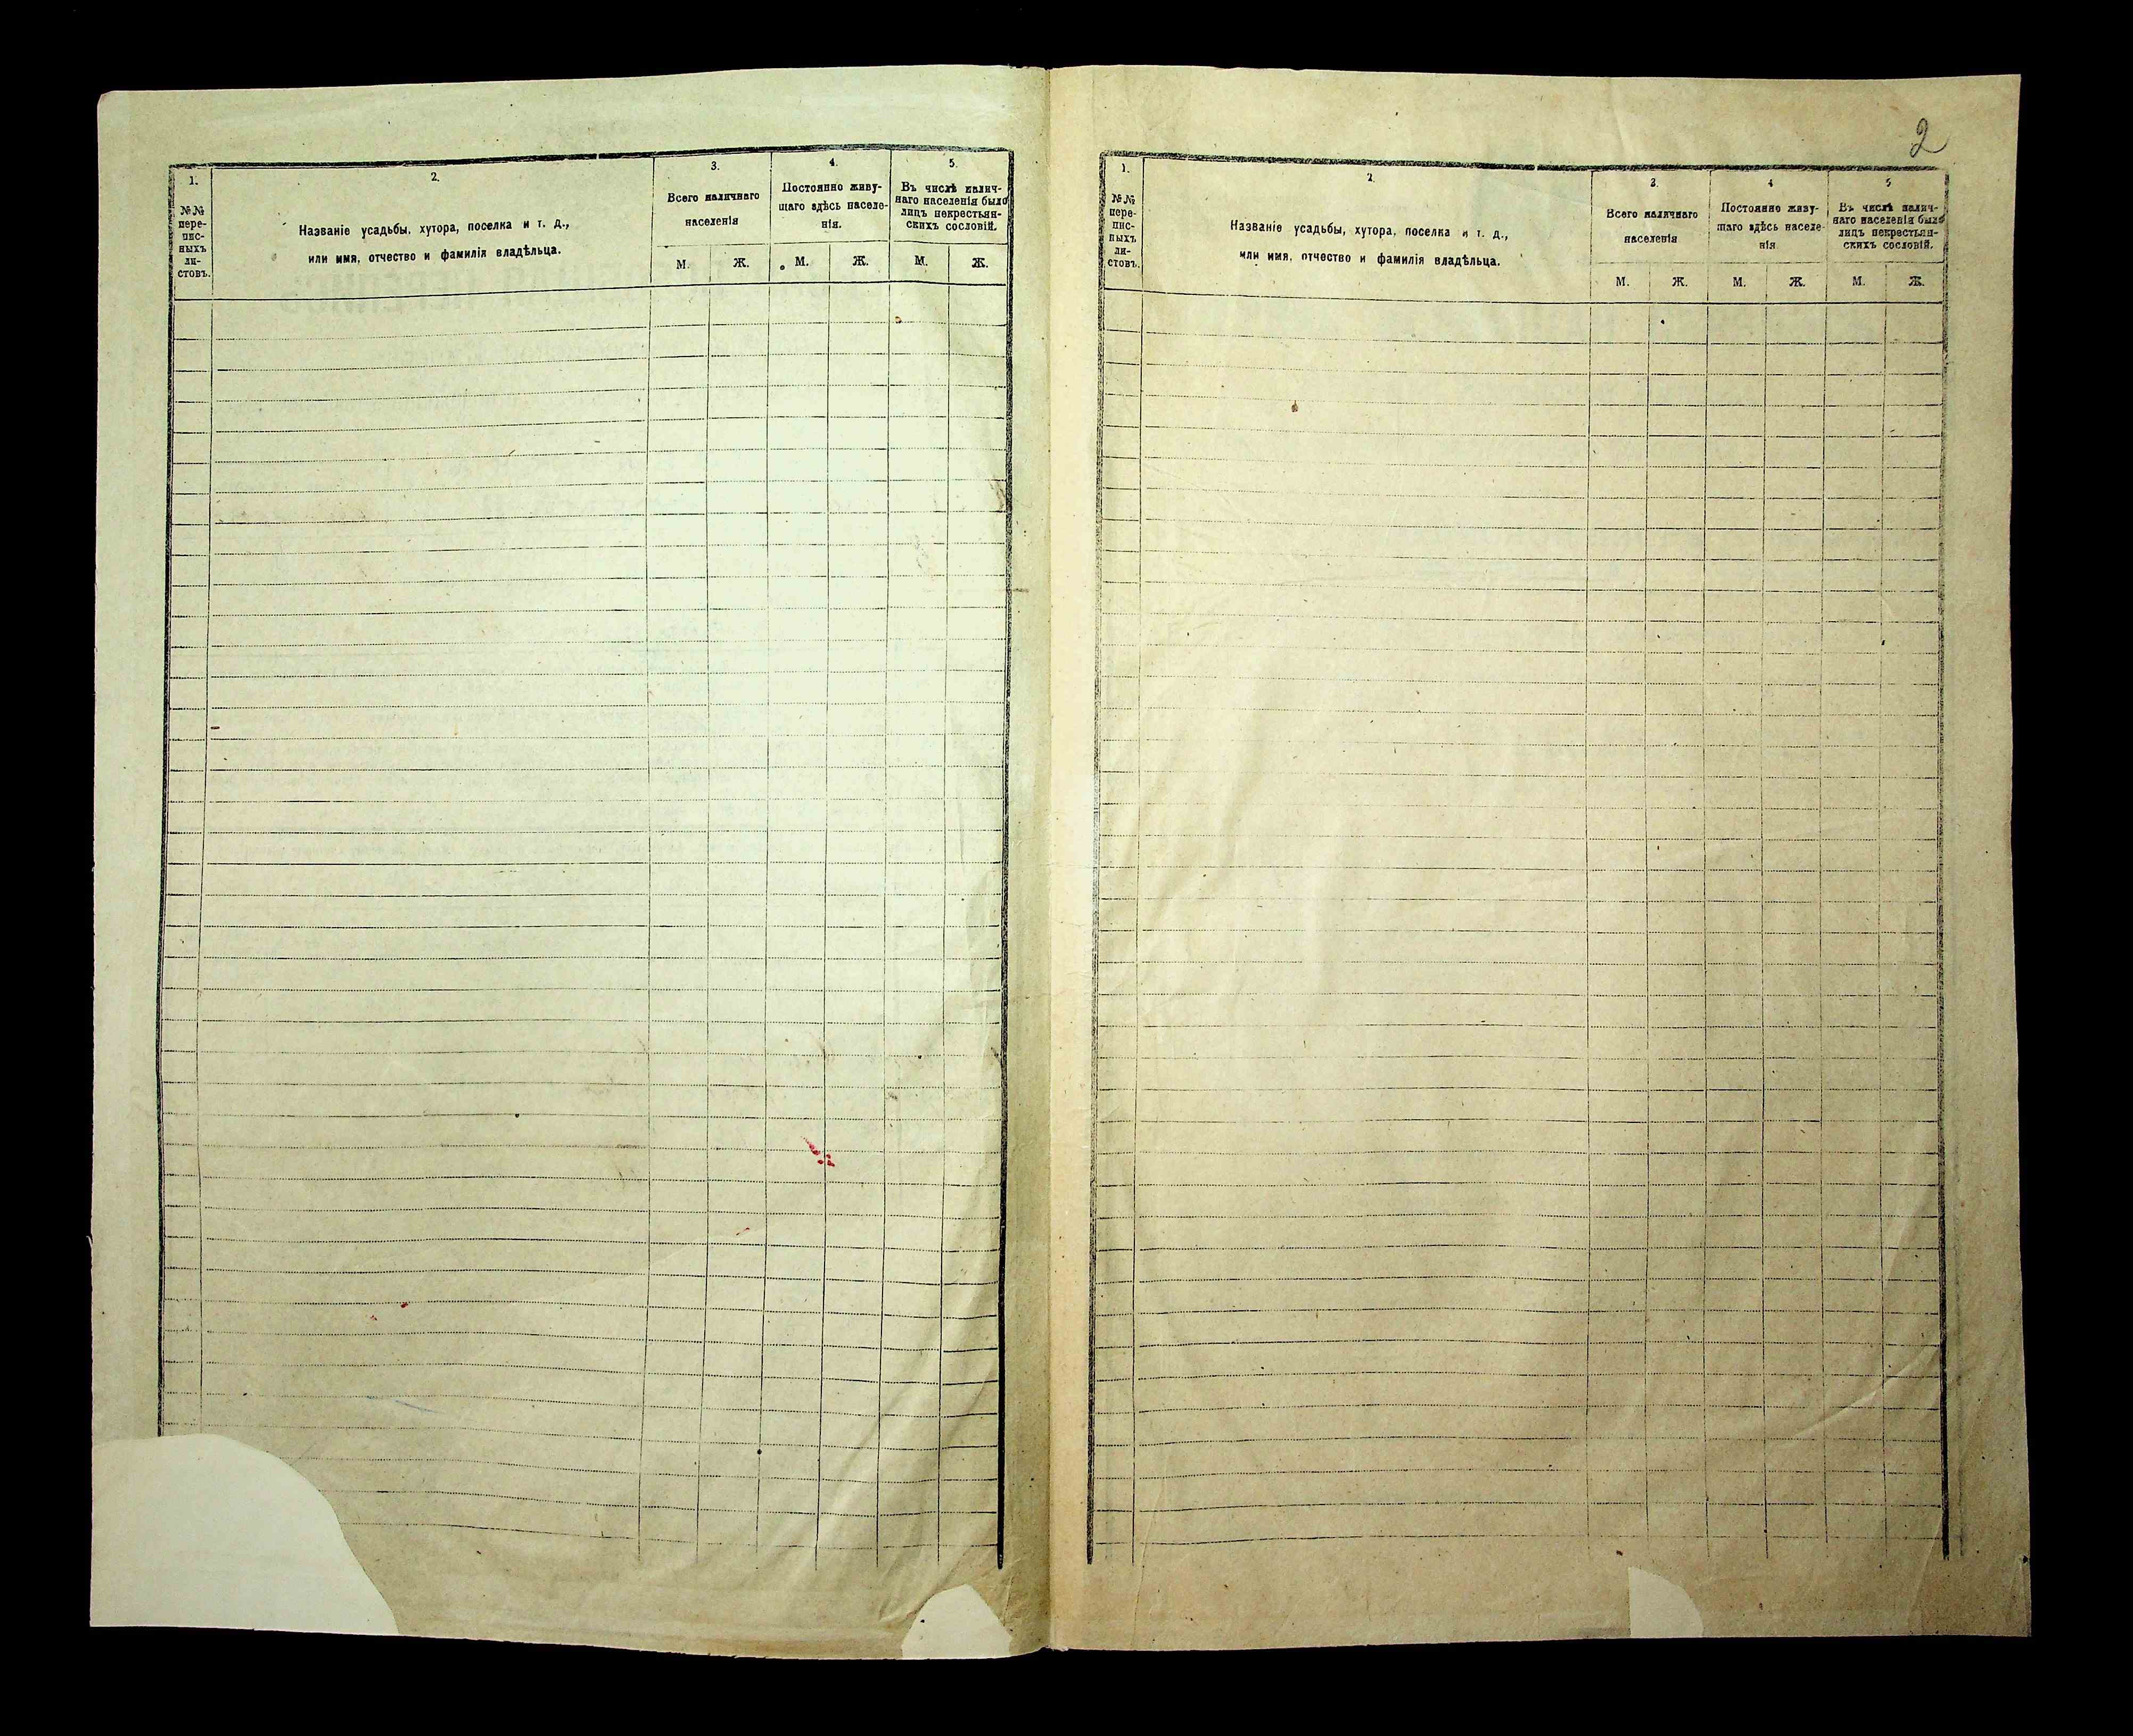 1.
№№
пере-
пис-
ныхъ
ли-
стовъ.
2.
Названіе усадьбы, хутора, поселка и т. д.,
или имя, отчество и фамилія владѣльца.
3.
Всего наличнаго
населенія
М. Ж.
4.
Постоянно живу-
щаго здѣсь населе-
нія.
М. Ж.
5.
Въ числѣ налич-
наго населенія было
лицъ некрестьян-
скихъ сословій.
М. Ж.
2
1.
№№
пере-
пис-
ныхъ
ли-
стовъ.
2.
Названіе усадьбы, хутора, поселка и т. д.,
или имя, отчество и фамилія владѣльца.
3.
Всего наличнаго
населенія
М. Ж.
4
Постоянно живу-
щаго здѣсь населе-
нія
М. Ж.
5
Въ числѣ налич-
наго населенія было
лицъ некрестьян-
скихъ сословій.
М. Ж.